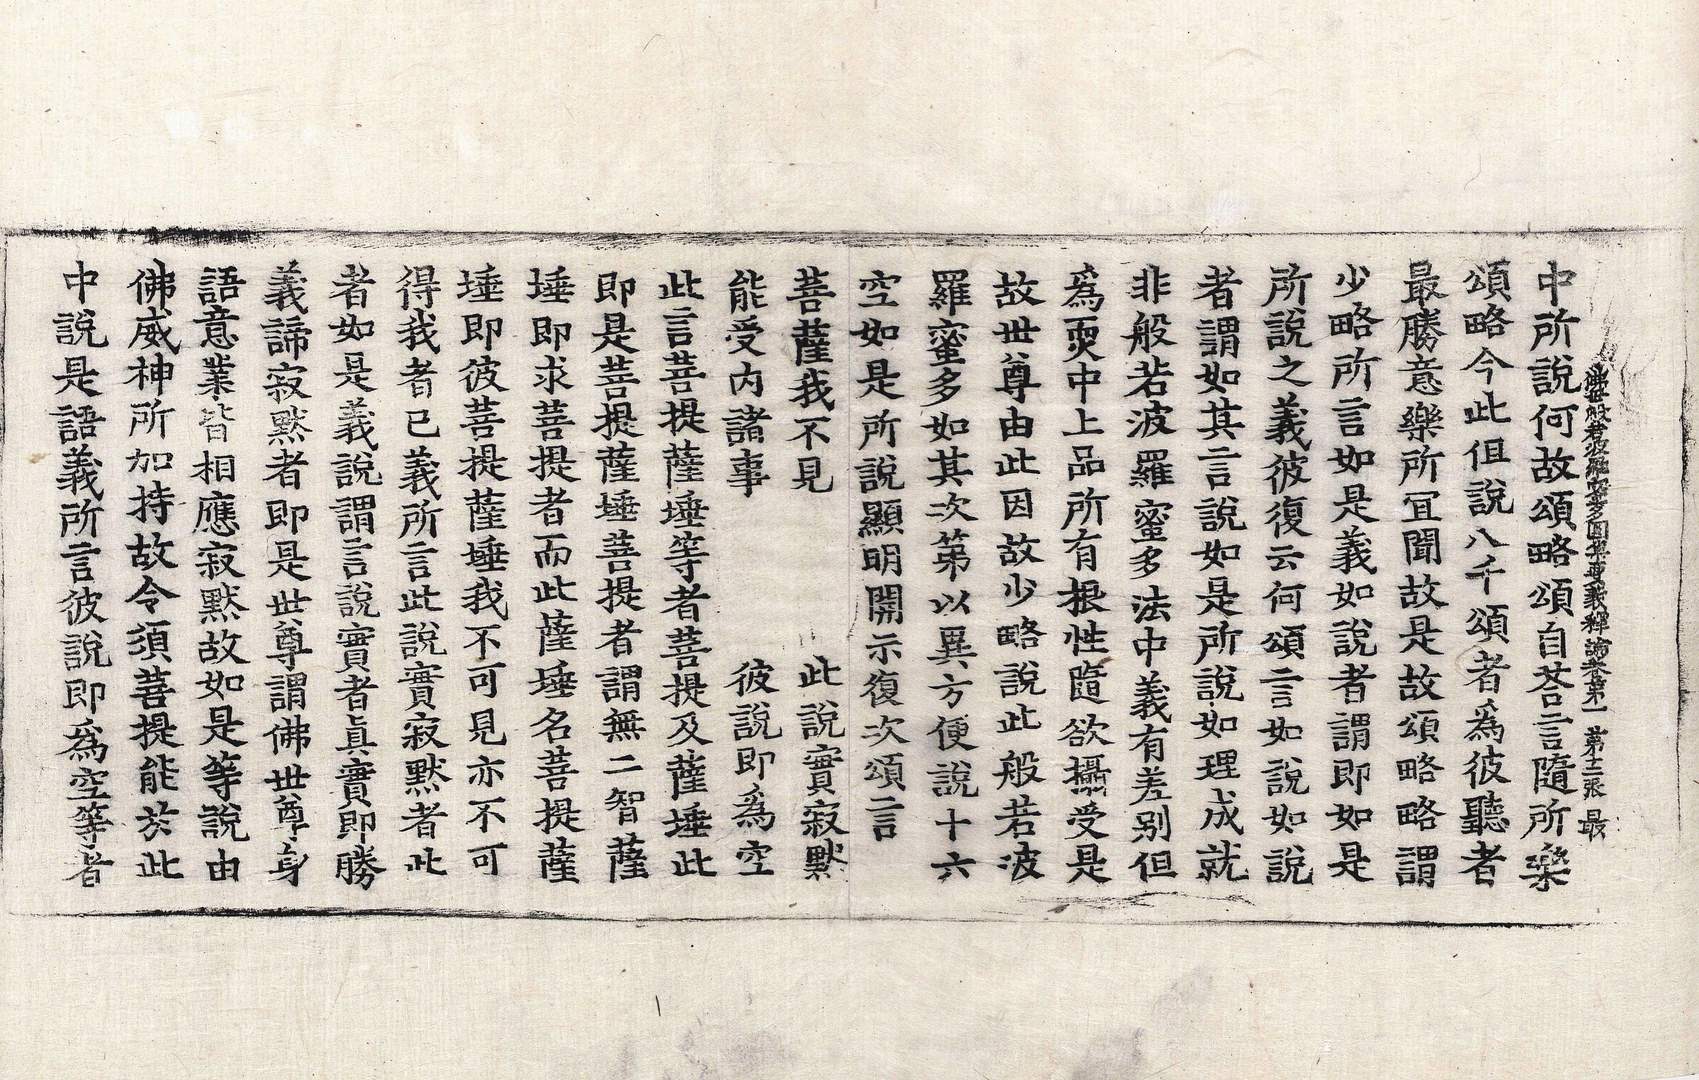 佛母般若波羅蜜多圓集要義釋論卷第一 第十二張 最
中所說何故頌略頌自荅言隨所樂
頌略今此但說八千頌者為彼聽者
最勝意樂所冝聞故是故頌略略謂
少略所言如是義如說者謂即如是
所說之義彼復云何頌言如說如說
者謂如其言說如是所說如理成就
非般若波羅蜜多法中義有差別但
為耎中上品所有根性隨欲攝受是
故世尊由此因故少略說此般若波
羅蜜多如其次第以異方便說十六
空如是所說顯明開示復次頌言
菩薩我不見 此說實寂默
能受內諸事 彼說即為空
此言菩提薩埵等者菩提及薩埵此
即是菩提薩埵菩提者謂無二智薩
埵即求菩提者而此薩埵名菩提薩
埵即彼菩提薩埵我不可見亦不可
得我者已義所言此說實寂默者此
者如是義說謂言說實者真實即勝
義諦寂默者即是世尊謂佛世尊身
語意業皆相應寂默故如是等說由
佛威神所加持故令須菩提能於此
中說是語義所言彼說即為空等者